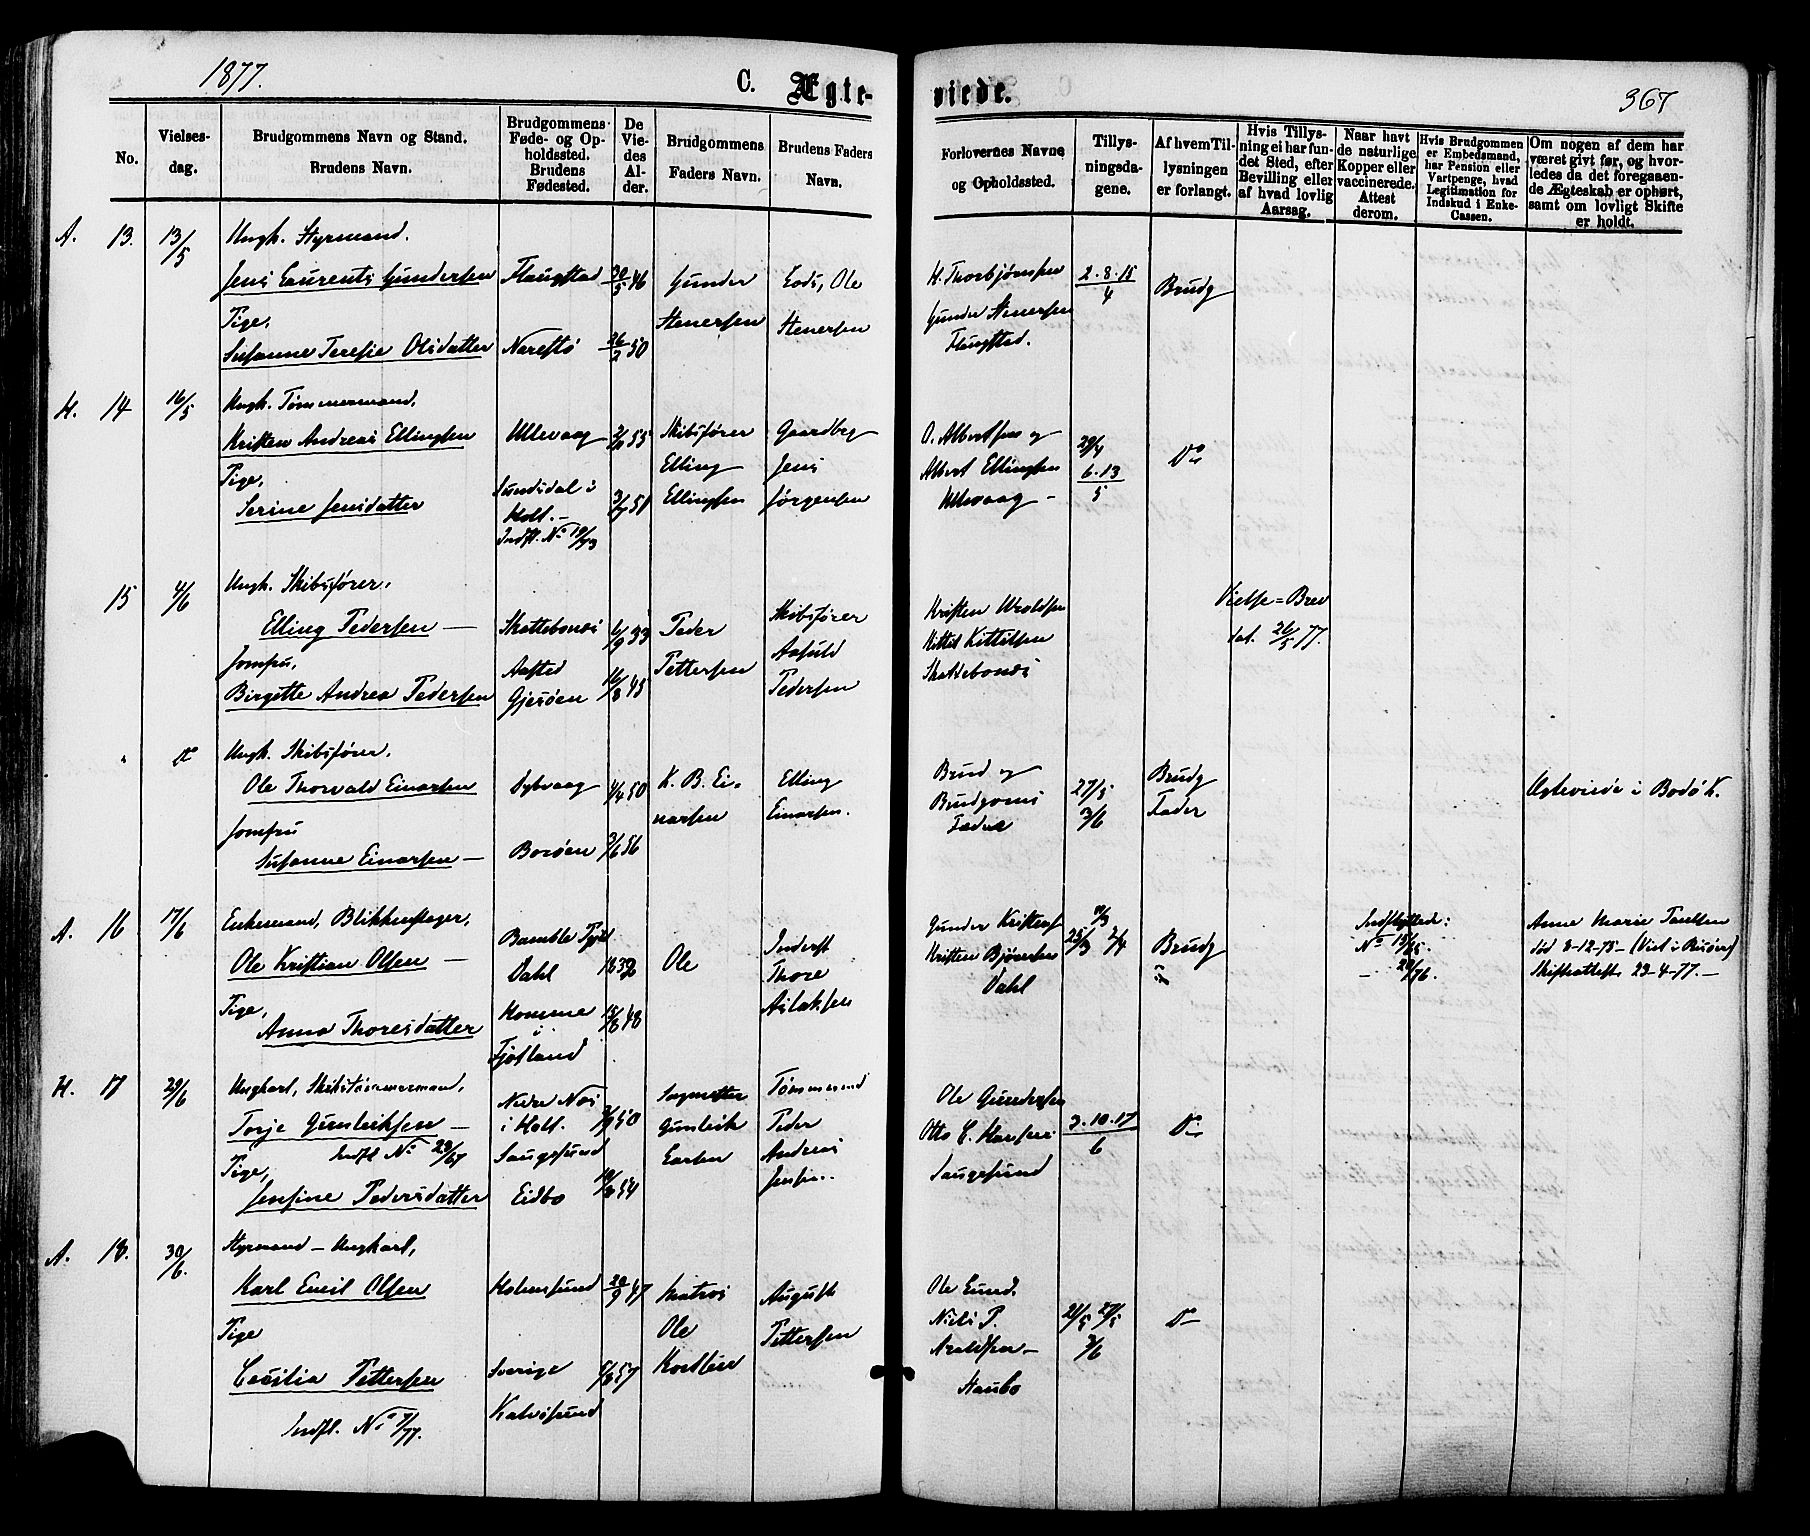 1877.
C. Ægte-
viede.
367
No.
Vielses-
dag.
Brudgommens Navn og Stand.
Brudens Navn.
Brudgommens
Føde- og Op-
holdssted.
Brudens
Fødested.
De
Vie-
des
Al-
der.
Brudgommens
Faders Navn.
Brudens Faders
Navn.
Forlovernes Navne
og Opholdssted.
Tillys-
ningsda-
gene.
Af hvem Til-
lysningen
er forlangt.
Hvis Tillys-
ning ei har fun-
det Sted, efter
Bevilling eller
af hvad lovlig
Aarsag.
Naar havt
de naturlige
Kopper eller
vaccinerede.
Attest
derom.
Hvis Brudgommen
er Embedsmand,
har Pension eller
Vartpenge, hvad
Legitimation for
Indskud i Enke-
Cassen.
Om nogen af dem har
været givt før, og hvor-
ledes da det foregaaen-
de Ægteskab er ophørt,
samt om lovligt Skifte
er holdt.
A. 13. 13/5
Ungk. Styrmand.
Jens Laurents Gundersen
Tige,
Susanne Teresie Olsdatter
Flaugstad
Narestø
30/5 46
26/2 50
Gunder
Stenersen
Lods, Ole
Stenersen
H. Thorbjørnsen
Gunder Stenersen
Flaugstad.
2.8.15
4
Brudg
H. 14 16/5
Ungk. Tømmermand,
Kristen Andreas Ellingsen
Tige,
Serine Jensdatter
Ullevaag
Sundsdal i
Holt.-
Indfl. No 19/73
Skibsfører
Elling
Ellingsen
Gaardbrg
Jens
Jørgensen
O. Albertsen og
Albert Ellingsen
Ullevaag -
29/4
6.13
5
Do
15 4/6
Ungk. Skibsfører,
Elling Pedersen -
Jomfru,
Birgitte Andrea Pedersen
Skattebonæs
Aasted
Gjesøen
6/9 33
16/8 45
Peder
Pettersen
Skibsfører
Aasuld
Pedersen
Kristen Uroldsen
Kittil Kittilsen
Skattebonæs
Vielse=Brev
dat. 26/5 77.
Do
Ungk. Skibsfører,
Ole Thorvald Einarsen
Jomfru
Susanne Einarsen -
Dybvaag
Borøen
4/4 50
3/6 56
K. B. Ei-
narsen
Elling
Einarsen.
Brud og
Brudgoms
Fædre
27/5
3/6
Brudg
Fader
Ægteviede i Bodø K.
A. 16 17/6
Enkemand, Blikkenslager,
Ole Kristian Olsen -
Tige,
Anna Thoresdatter
Bamble
Dahl
Komme
i
Fjotland
Ole
Inderst
Thore
Aslaksen
Gunder Kristens
Kristen Bjørnsen
Dahl
25/3 2/4
Brudg
Indflyttede:
No 15/75.
- 20/76.
Anne Marie Paulsen
død 8-12-75 - (Viet i Risøer)
Skifteattest 23-4-77.-
H. 17 29/6
Ungkarl, Skibstømmermand,
Torje Gunleiksen -
Indfl No 23/67
Tige,
Jensine Pedersdatter
Nedre Næs
i Holt.
Saugesund
Eidbo
Sagmester
Gunleik
Larsen
Tømmermd
Peder
Andreas
Jensen.
Ole Gundersen
Otto C. Hansen
Saugesund
3.10.17
6
Do
A. 18. 30/6.
Styrmand - Ungkarl,
Karl Emil Olsen
Tige
Cecilia Pettersen
Indfl. No 7/77.
Holmesund
Sverige
Kalvesund
20/9 47
Matros
Ole
August
Pettersen
Ole Lund.
Niels P.
Aroldsen -
Staubo
21/5 27/5
3/6
Do